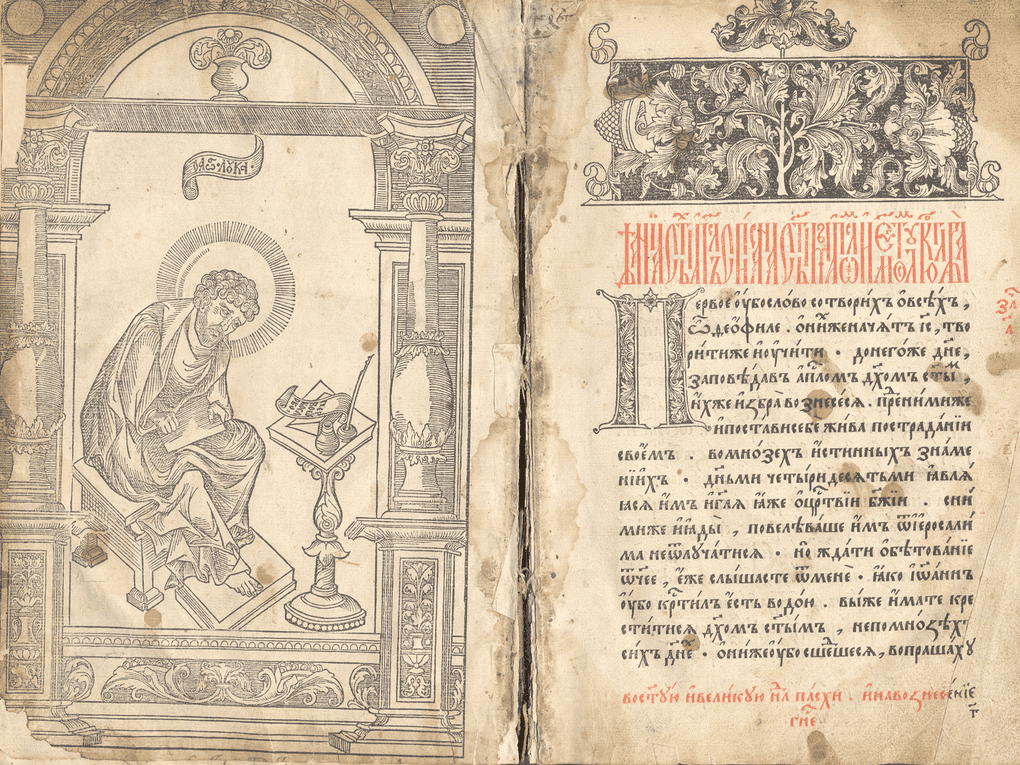 лꙋка
Первое ᲂу҆бо слово сотворихъ ѡ҆ всѣхъ ,
ѽ део́филе . ѻ҆ ниже начатъ і҃с , тво
рити же и҆ ᲂу҆чи́ти · донего́же дн҃е ,
заповѣ́давъ а҆пⷭ҇ломъ дх҃омъ ст҃ымъ ,
и҆́хже и҆збра̀ вознесесѧ . пред ними же
и҆ постави себе жива по страда́нїи
свое́мъ . во мно́зехъ и҆́стинныхъ зна́ме
нїихъ · дн҃ьми четы́ридесѧтьми ꙗ҆влѧ
ꙗсѧ и҆̀мъ и҆ гл҃ѧ ꙗ҆́же ѡ҆ црⷭ҇твїи бж҃їи . с ни
ми же и҆ ꙗ҆ды , повелѣва́ше и҆̀мъ ѿ і҆еросали́
ма не ѿлꙋча́тисѧ · но жда́ти ѻ҆бѣтова́нїе
ѻ҆́ч҃ее , є҆́же слы́шасте ѿ менѐ · ꙗ҆́ко і҆ѡ҆а́ннъ
ᲂу҆́бо крⷭ҇ти́лъ є҆́сть водо́ю . вы́ же и҆́мате кре
сти́тисѧ дх҃омъ ст҃ы́мъ , не по мно́зѣхъ
си́хъ дн҃е · ѻ҆ни́же ᲂу҆́бо сше́дшесѧ , вопраша́хꙋ
в ост҃ꙋю и҆ вели́кꙋю нⷣлю па́схи . и҆ на вознесе́нїе
гн҃е